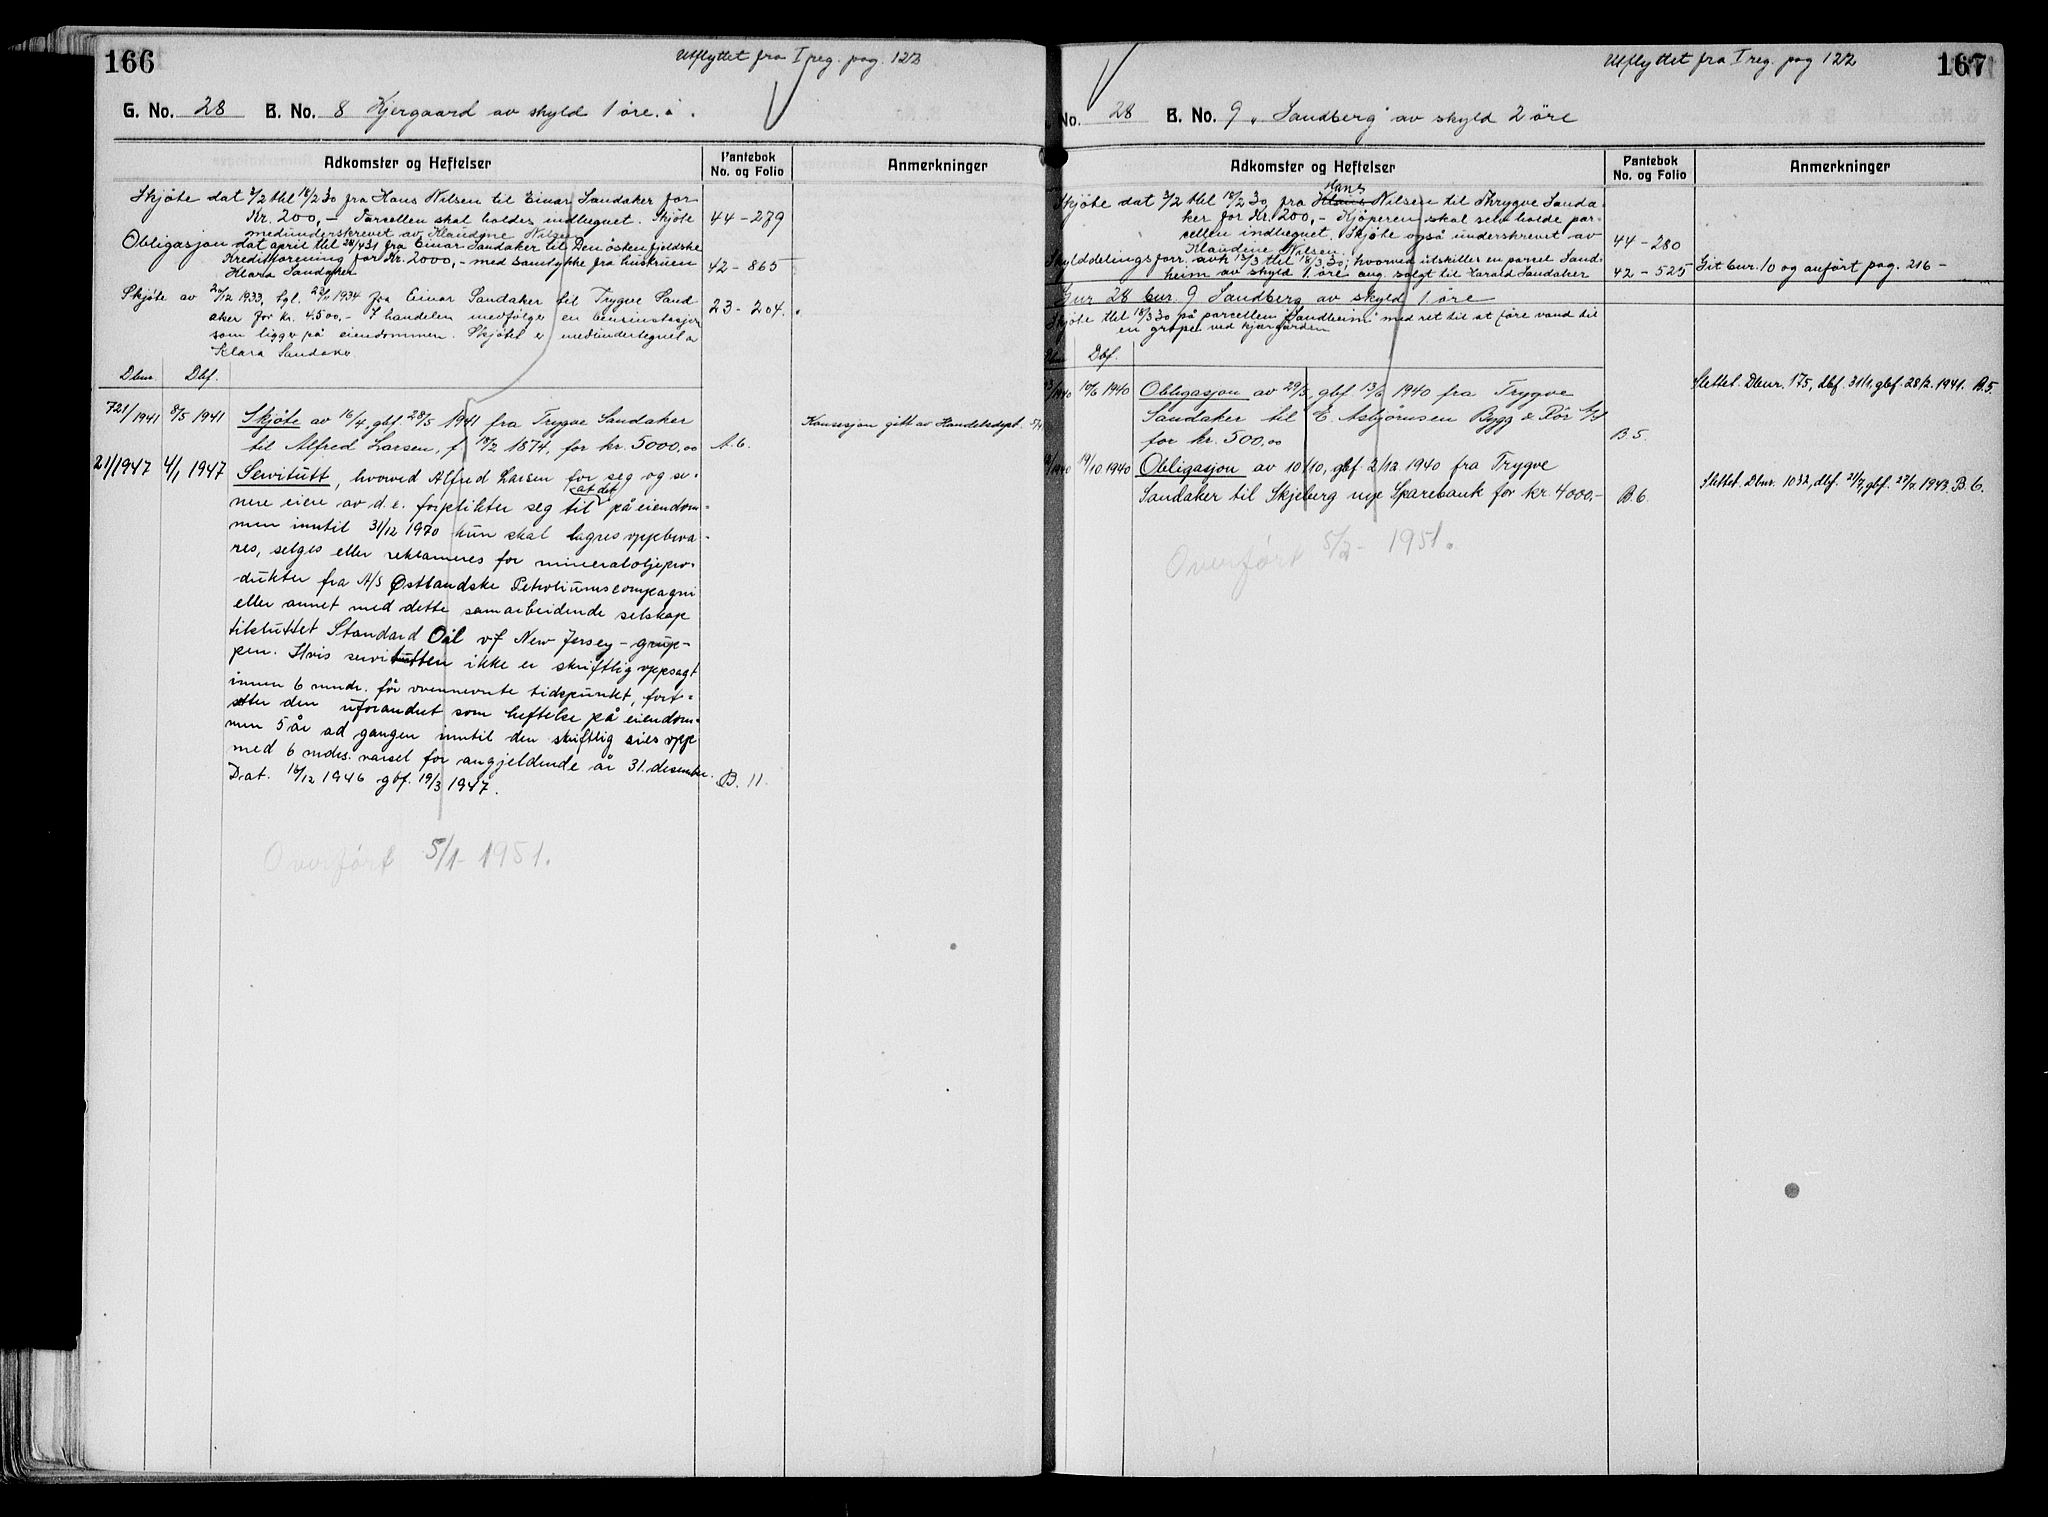 166
Utflyttet fra I reg. pag. 122
G. No. 28 B. No. 8 Kjergaard av skyld 1 öre.
Adkomster og Heftelser
Pantebok
No. og Folio
Anmerkninger
Skjöte dat 3/2 thl 18/2 30 fra Hans Nilsen til Einar Sandaker for
Kr. 200,- Parcellen skal holdes indhegnet. Skjöte
medunderskrevet av Klaudine Nilsen
44-279
Obligasjon dat april thl 28/4 31 fra Einar Sandaker til Den östenfjeldske
Kreditforening for Kr. 2000,- med samtykke fra hustruen
Klara Sandaker
42-865
Skjöte av 21/12 1933, tgl. 23/1 1934 fra Einar Sandaker til Trygve Sand
aker for kr. 4.500,- I handelen medfölger en bensinstasjon
som ligger på eiendommen. Skjötet er medundertegnet a
Klara Sandaker
23-204.
Dbnr. Dbf.
721/1941 8/5 1941 Skjöte av 16/4, gbf. 28/5 1941 fra Trygve Sandaker
til Alfred Larsen, f. 19/2 1874, for kr. 5000,00
A.6.
Konsesjon gitt av Handelsdept.
21/1947 4/1 1947 Servitutt, hvorved Alfred Larsen for seg og se-
nere eiere av d.e. forplikter seg til at det på eiendom-
men inntil 31/12 1970 kun skal lagres oppbeva-
res, selges eller reklameres for mineraloljepro-
dukter fra A/S Östlandske Petroliumscompagni
eller annet med dette samarbeidende selskap
tilsluttet Standard Oil of New Jersey-grup-
pen. Hvis servitutten ikke er skriftlig oppsagt
innen 6 mndr. för ovennevnte tidspunktet, fort-
setter den uforandret som heftelse på eiendom-
men 5 år ad gangen inntil den skriftlig sies opp
med 6 mndes. varsel for angjeldende år 31. desember.
Dat. 16/12 1946 gbf. 19/3 1947.
B. 11.
Overfört 5/1- 1951.
167
Utflyttet fra I reg. pag 122
No. 28 B. No. 9 "Sandberg" av skyld 2 öre
Adkomster og Heftelser
Pantebok
No. og Folio
Anmerkninger
Hans
Skjöte dat 3/2 thl 18/2 30 fra Nilsen til Thrygve Sanda-
ker for Kr. 200,- Kjöperen skal selv holde par-
cellen indhegnet. Skjöte også underskrevet av
Klaudine Nilsen
44-280
Skylddelingsforr. avh 13/3 thl 18/3 30, hvorved utskilles en parcel Sand-
heim av skyld 1 öre ang. solgt til Harald Sandaker
42-525
Git bnr. 10 og anfört pag. 216-
Gnr 28 bnr. 9 Sandberg av skyld 1 öre
Skjöte thl 18/3 30 på parcellen "Sandheim" med ret til at före vand til
en gröpe ved kjærgården
Dbnr Dbf.
10/6 1940 Obligasjon av 29/5, gbf 13/6 1940 fra Trygve
Sandaker til E. Asbjörnsen Bygg & Rör A/S
for kr. 500,00
B 5.
Slettet. Dbnr. 175, dbf. 31/1, gbf. 28/2. 1941. B.5.
19/10 1940 Obligasjon av 10/10, gbf. 2/12 1940 fra Trygve
Sandaker til Skjeberg nye Sparebank for kr. 4000.-
B.6.
Slettet. Dbnr. 1032, dbf. 21/7, gbf. 27/7 1943. B.6.
Overfört 5/2- 1951.